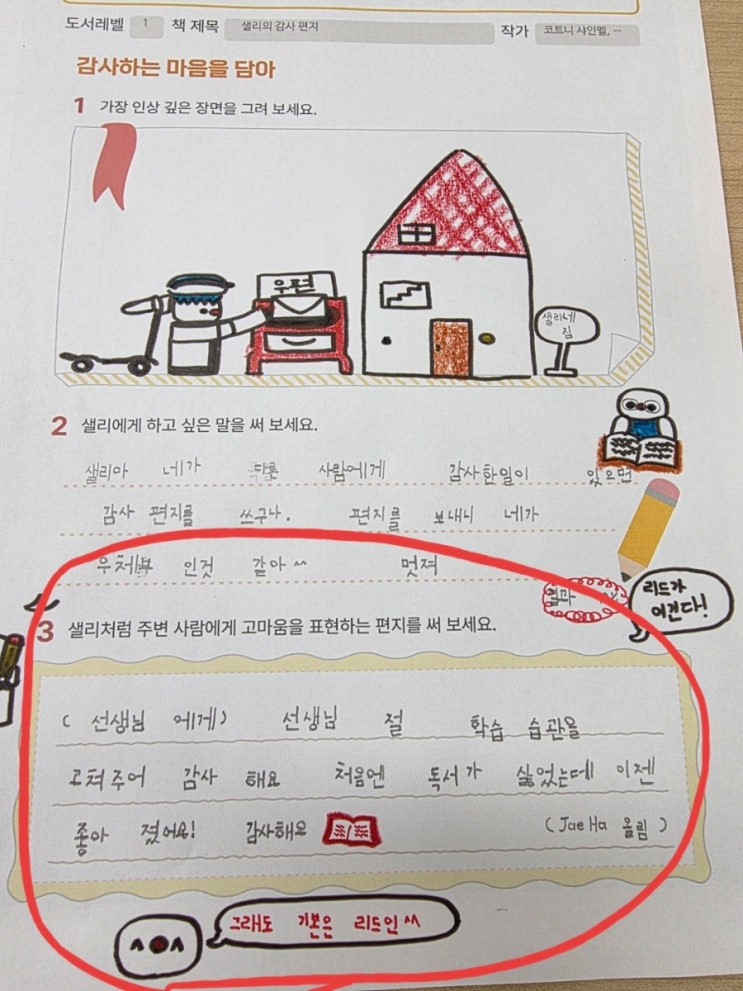 도서레벨 1 책 제목 샐리의 감사 편지 작가 코트니 샤인멜, …
감사하는 마음을 담아
1 가장 인상 깊은 장면을 그려 보세요.
우편
샐리네
집
2 샐리에게 하고 싶은 말을 써 보세요.
샐리아 네가 다른 사람에게 감사한일이 있으면
감사 편지를 쓰구나. 편지를 보내니 네가
우체부 인것 같아^^ 멋져
결과
리드가
이긴다!
3 샐리처럼 주변 사람에게 고마움을 표현하는 편지를 써 보세요.
( 선생님 에게) 선생님 절 학습 습관을
고쳐주어 감사 해요 처음엔 독서가 싫었는데 이젠
좋아 졌어요! 감사해요
(JaeHa 올림)
그래도 기본은 리드인^^